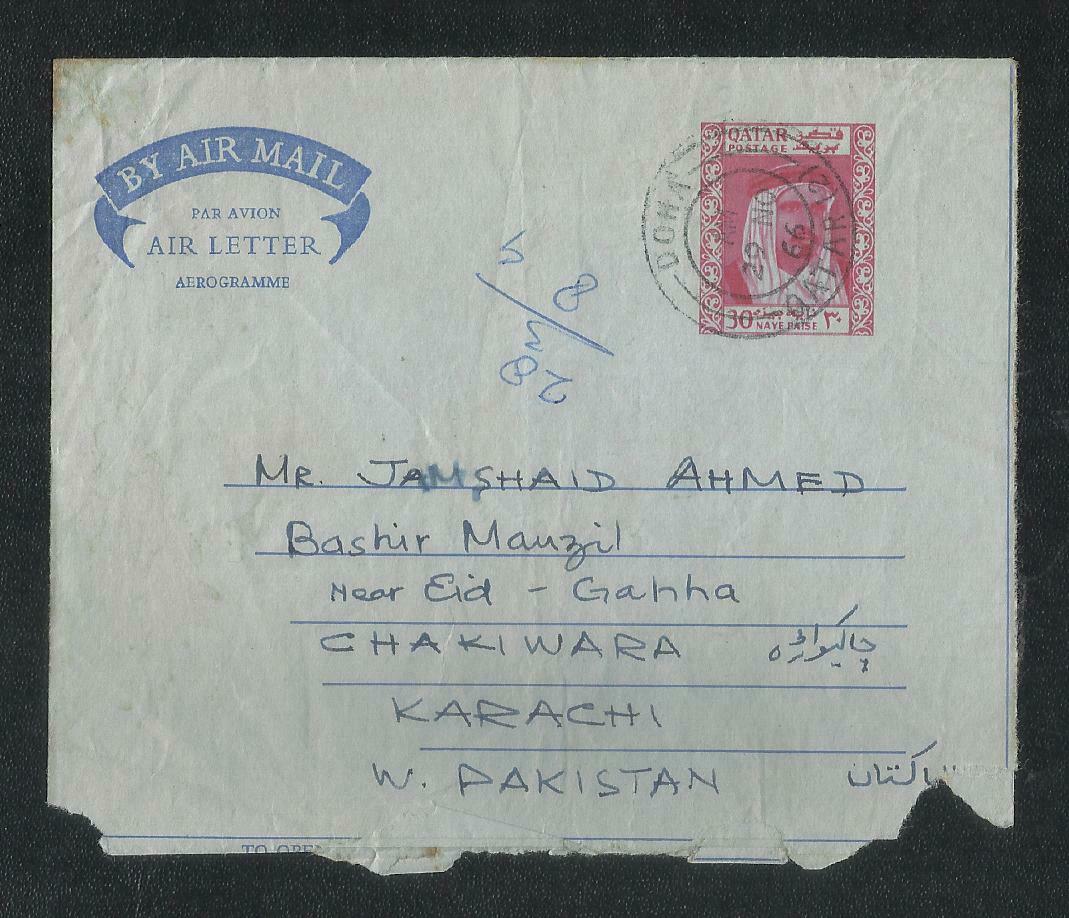 BY AIR MAIL
PAR AVION
AIR LETTER
AEROGRAMME
QATAR قطر
POSTAGE بريد
30 NAYE PAISE ٣٠
DOHA
QATAR (2)
AM
29 NO
66
MR. JAMSHAID AHMED
Bashir Manzil
Near Eid - Gahha
CHAKIWARA چاکیواڑہ
KARACHI
W. PAKISTAN پاکستان
TO OPE